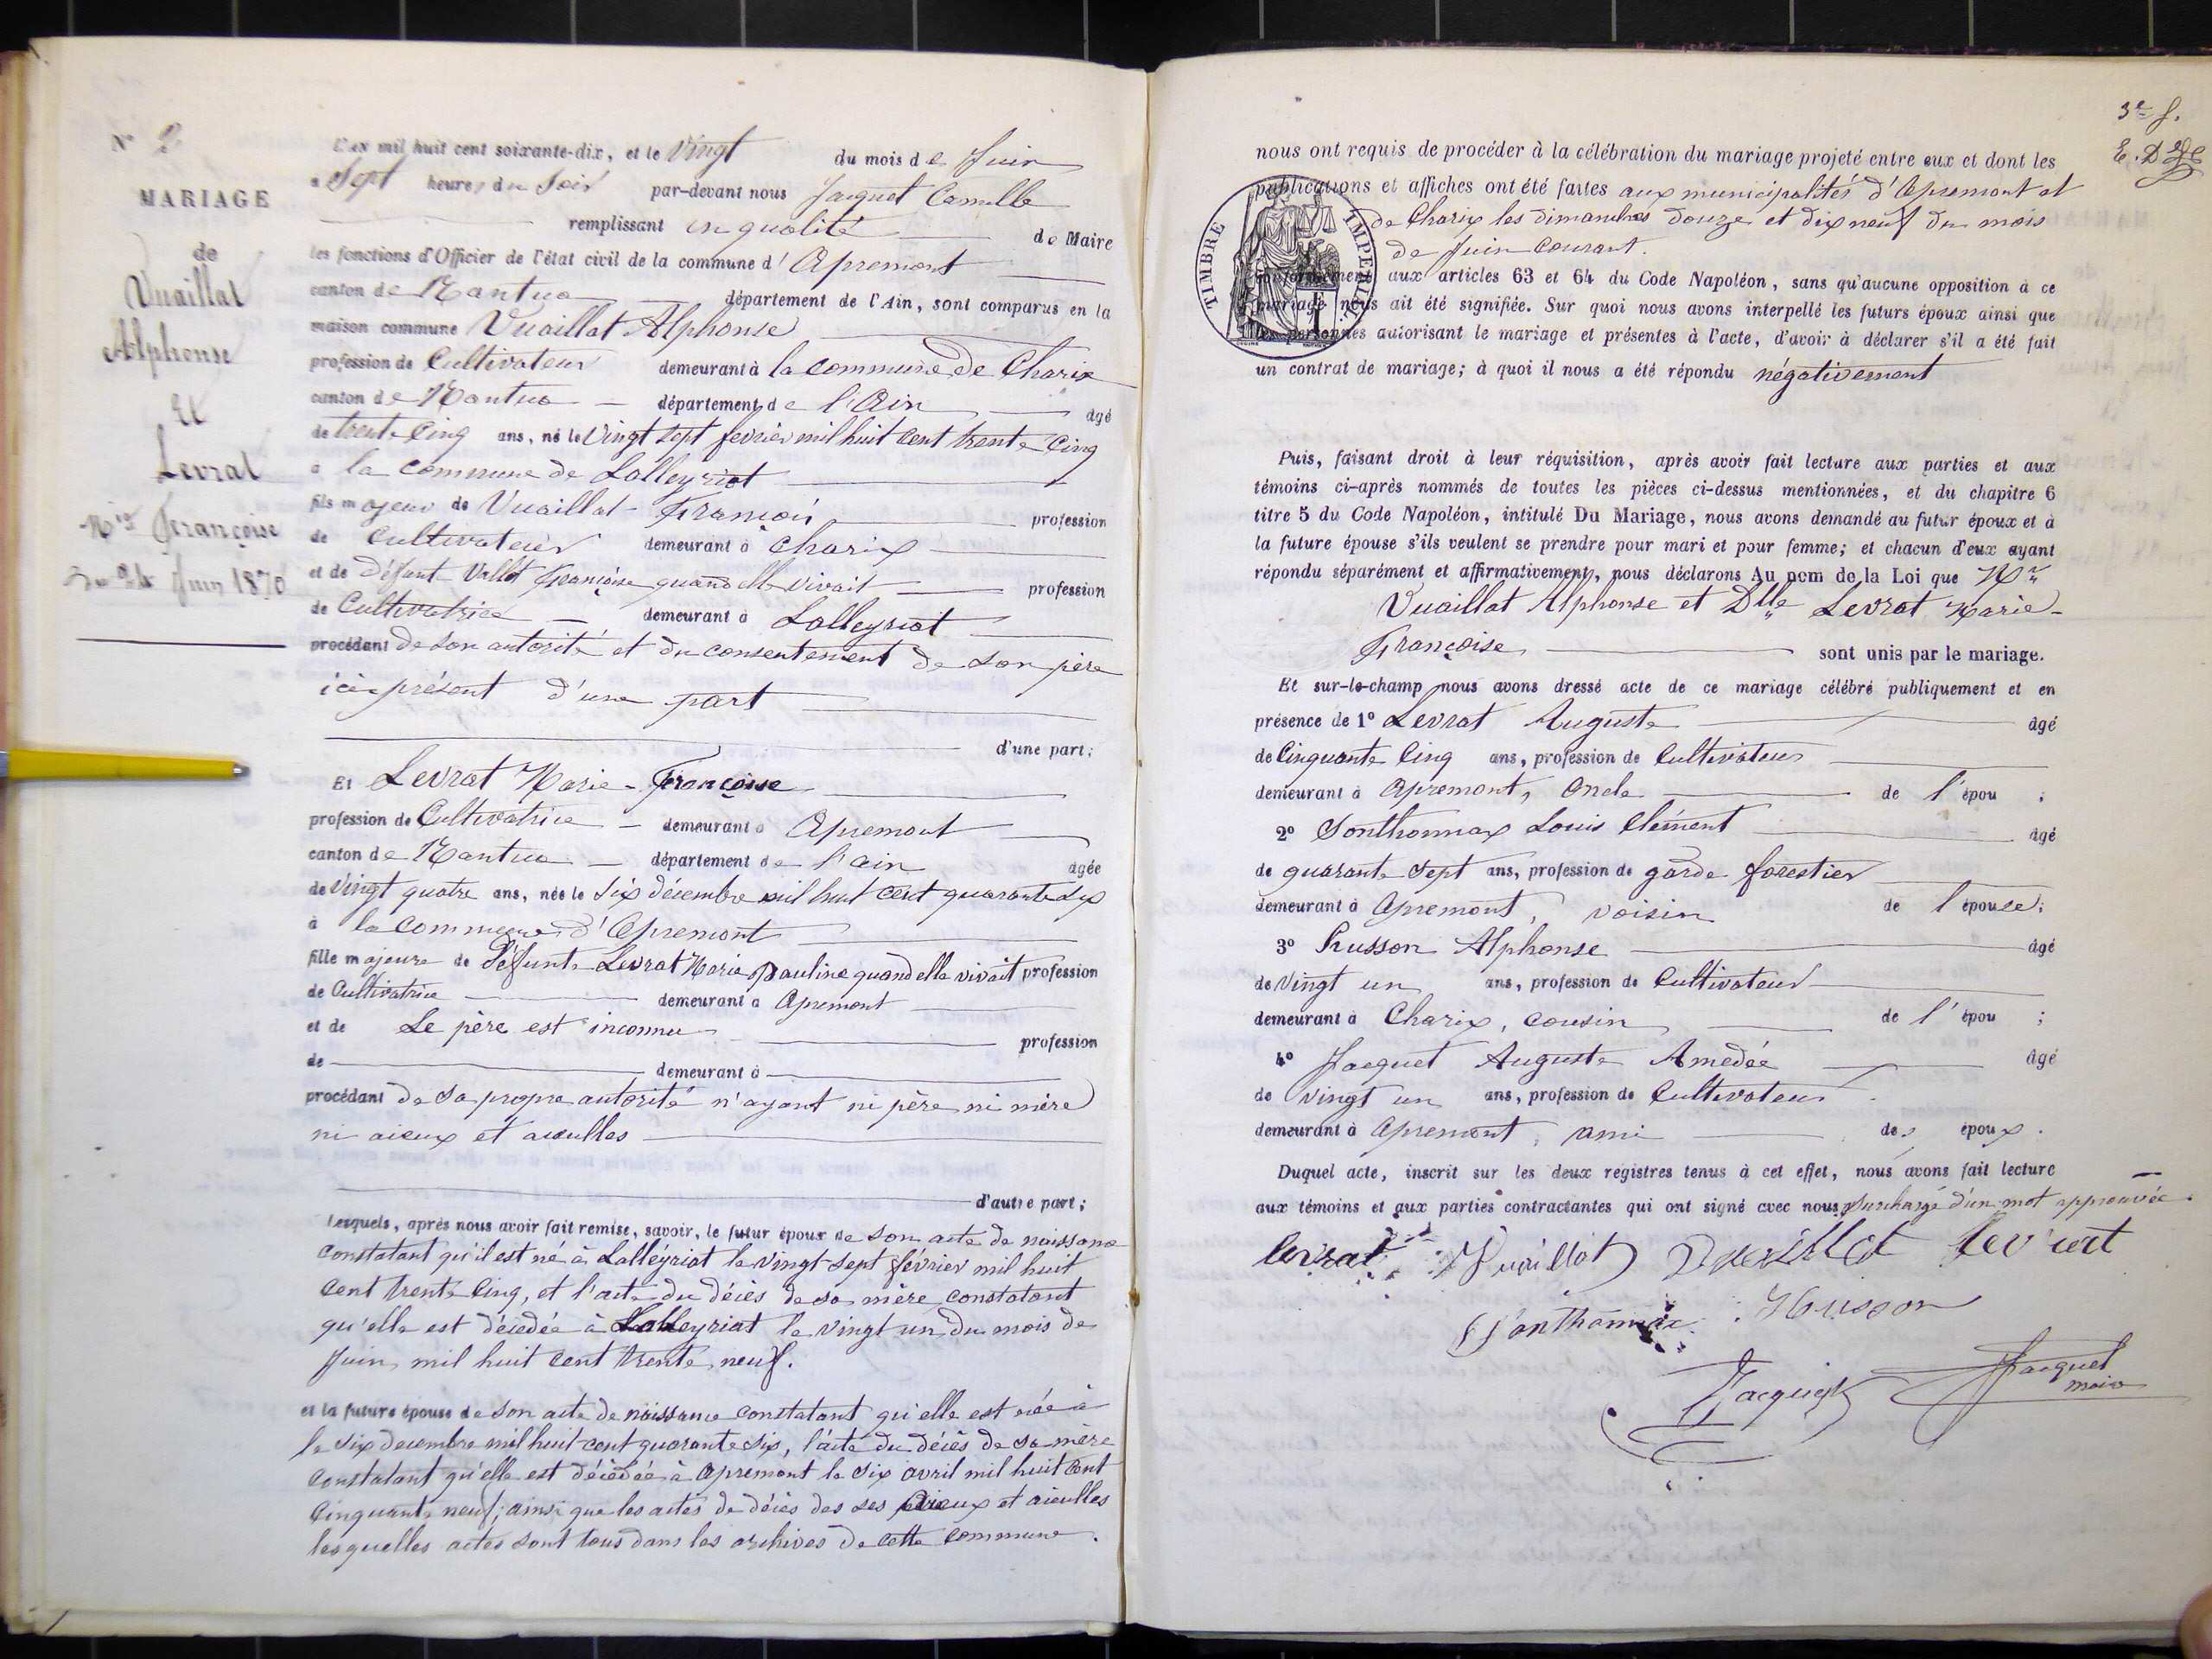 N° 2
MARIAGE
de
Vuaillat
Alphonse
Et
Levrat
Mie Françoise
Du Juin 1870
L'an mil huit cent soixante-dix, et le Vingt du mois de Juin
à Sept heures du Soir par-devant nous Jacquet Camille
remplissant en qualité de Maire
les fonctions d'Officier de l'état civil de la commune d'Apremont
canton de Nantua département de l'Ain, sont comparus en la
maison commune Vuaillat Alphonse
profession de Cultivateur demeurant à la commune de Charix
canton de Nantua département de l'Ain âgé
de trente Cinq ans, né le Vingt sept fevrier mil huit cent trente Cinq
à la commune de Lalleyriat
fils majeur de Vuaillat François profession
de Cultivateur demeurant à Charix
et de défunt Vallet Françoise quand elle vivait profession
de Cultivatrice demeurant à Lalleyriat
procédant de son autorité et du consentement de son père
ici présent d'une part
d'une part;
Et Levrat Marie-Françoise
profession de Cultivatrice demeurant à Apremont
canton de Nantua département de l'ain âgée
de Vingt quatre ans, née le Six décembre mil huit cent quarante six
à la commune d'Apremont
fille majeure de Défunte Levrat Marie Pauline quand elle vivait profession
de Cultivatrice demeurant à Apremont
et de Le père est inconnu profession
de demeurant à
procédant de sa propre autorité n'ayant ni père ni mère
ni aieux et aieulles
d'autre part;
Lesquels, après nous avoir fait remise, savoir, le futur époux de son acte de naissance
constatant qu'il est né à Lalleyriat le vingt-sept février mil huit
cent trente Cinq, et l'acte du décès de sa mère constatant
qu'elle est décédée à Lalleyriat le vingt un du mois de
Juin mil huit cent trente neuf.
et la future épouse de son acte de naissance constatant qu'elle est née à
le six decembre mil huit cent quarante six, l'acte du décès de sa mère
constatant qu'elle est décédée à Apremont le six avril mil huit Cent
Cinquante neuf; ainsi que les actes de décès des ses aieux et aieulles
lesquelles actes sont tous dans les archives de cette commune.
3e f.
nous ont requis de procéder à la célébration du mariage projeté entre eux et dont les
publications et affiches ont été faites aux municipalités d'Apremont et
de Charix les dimanches douze et dix neuf du mois
de Juin Courant.
TIMBRE IMPERIAL
conformément aux articles 63 et 64 du Code Napoléon, sans qu'aucune opposition à ce
mariage nous ait été signifiée. Sur quoi nous avons interpellé les futurs époux ainsi que
les personnes autorisant le mariage et présentes à l'acte, d'avoir à déclarer s'il a été fait
un contrat de mariage; à quoi il nous a été répondu négativement
Puis, faisant droit à leur réquisition, après avoir fait lecture aux parties et aux
témoins ci-après nommés de toutes les pièces ci-dessus mentionnées, et du chapitre 6
titre 5 du Code Napoléon, intitulé Du Mariage, nous avons demandé au futur époux et à
la future épouse s'ils veulent se prendre pour mari et pour femme; et chacun d'eux ayant
répondu séparément et affirmativement, nous déclarons Au nom de la Loi que Mr
Vuaillat Alphonse et Dlle Levrat Marie-
Françoise sont unis par le mariage.
Et sur-le-champ nous avons dressé acte de ce mariage célébré publiquement et en
présence de 1° Levrat Auguste âgé
de Cinquante Cinq ans, profession de Cultivateur
demeurant à Apremont, Oncle de l'épou ;
2° Sonthonnax Louis Clément âgé
de quarante Sept ans, profession de garde forestier
demeurant à Apremont, voisin de l'épouse;
3° Husson Alphonse âgé
de Vingt un ans, profession de Cultivateur
demeurant à Charix, cousin de l'épou ;
4° Jacquet Auguste Amedée âgé
de Vingt un ans, profession de Cultivateur
demeurant à Apremont, ami des époux.
Duquel acte, inscrit sur les deux registres tenus à cet effet, nous avons fait lecture
aux témoins et aux parties contractantes qui ont signé avec nous Surcharge d'un mot approuvée.
levrat Vuaillat Vuaillat levrat
Sonthonnax Husson
Jacquet Jacquet
maire